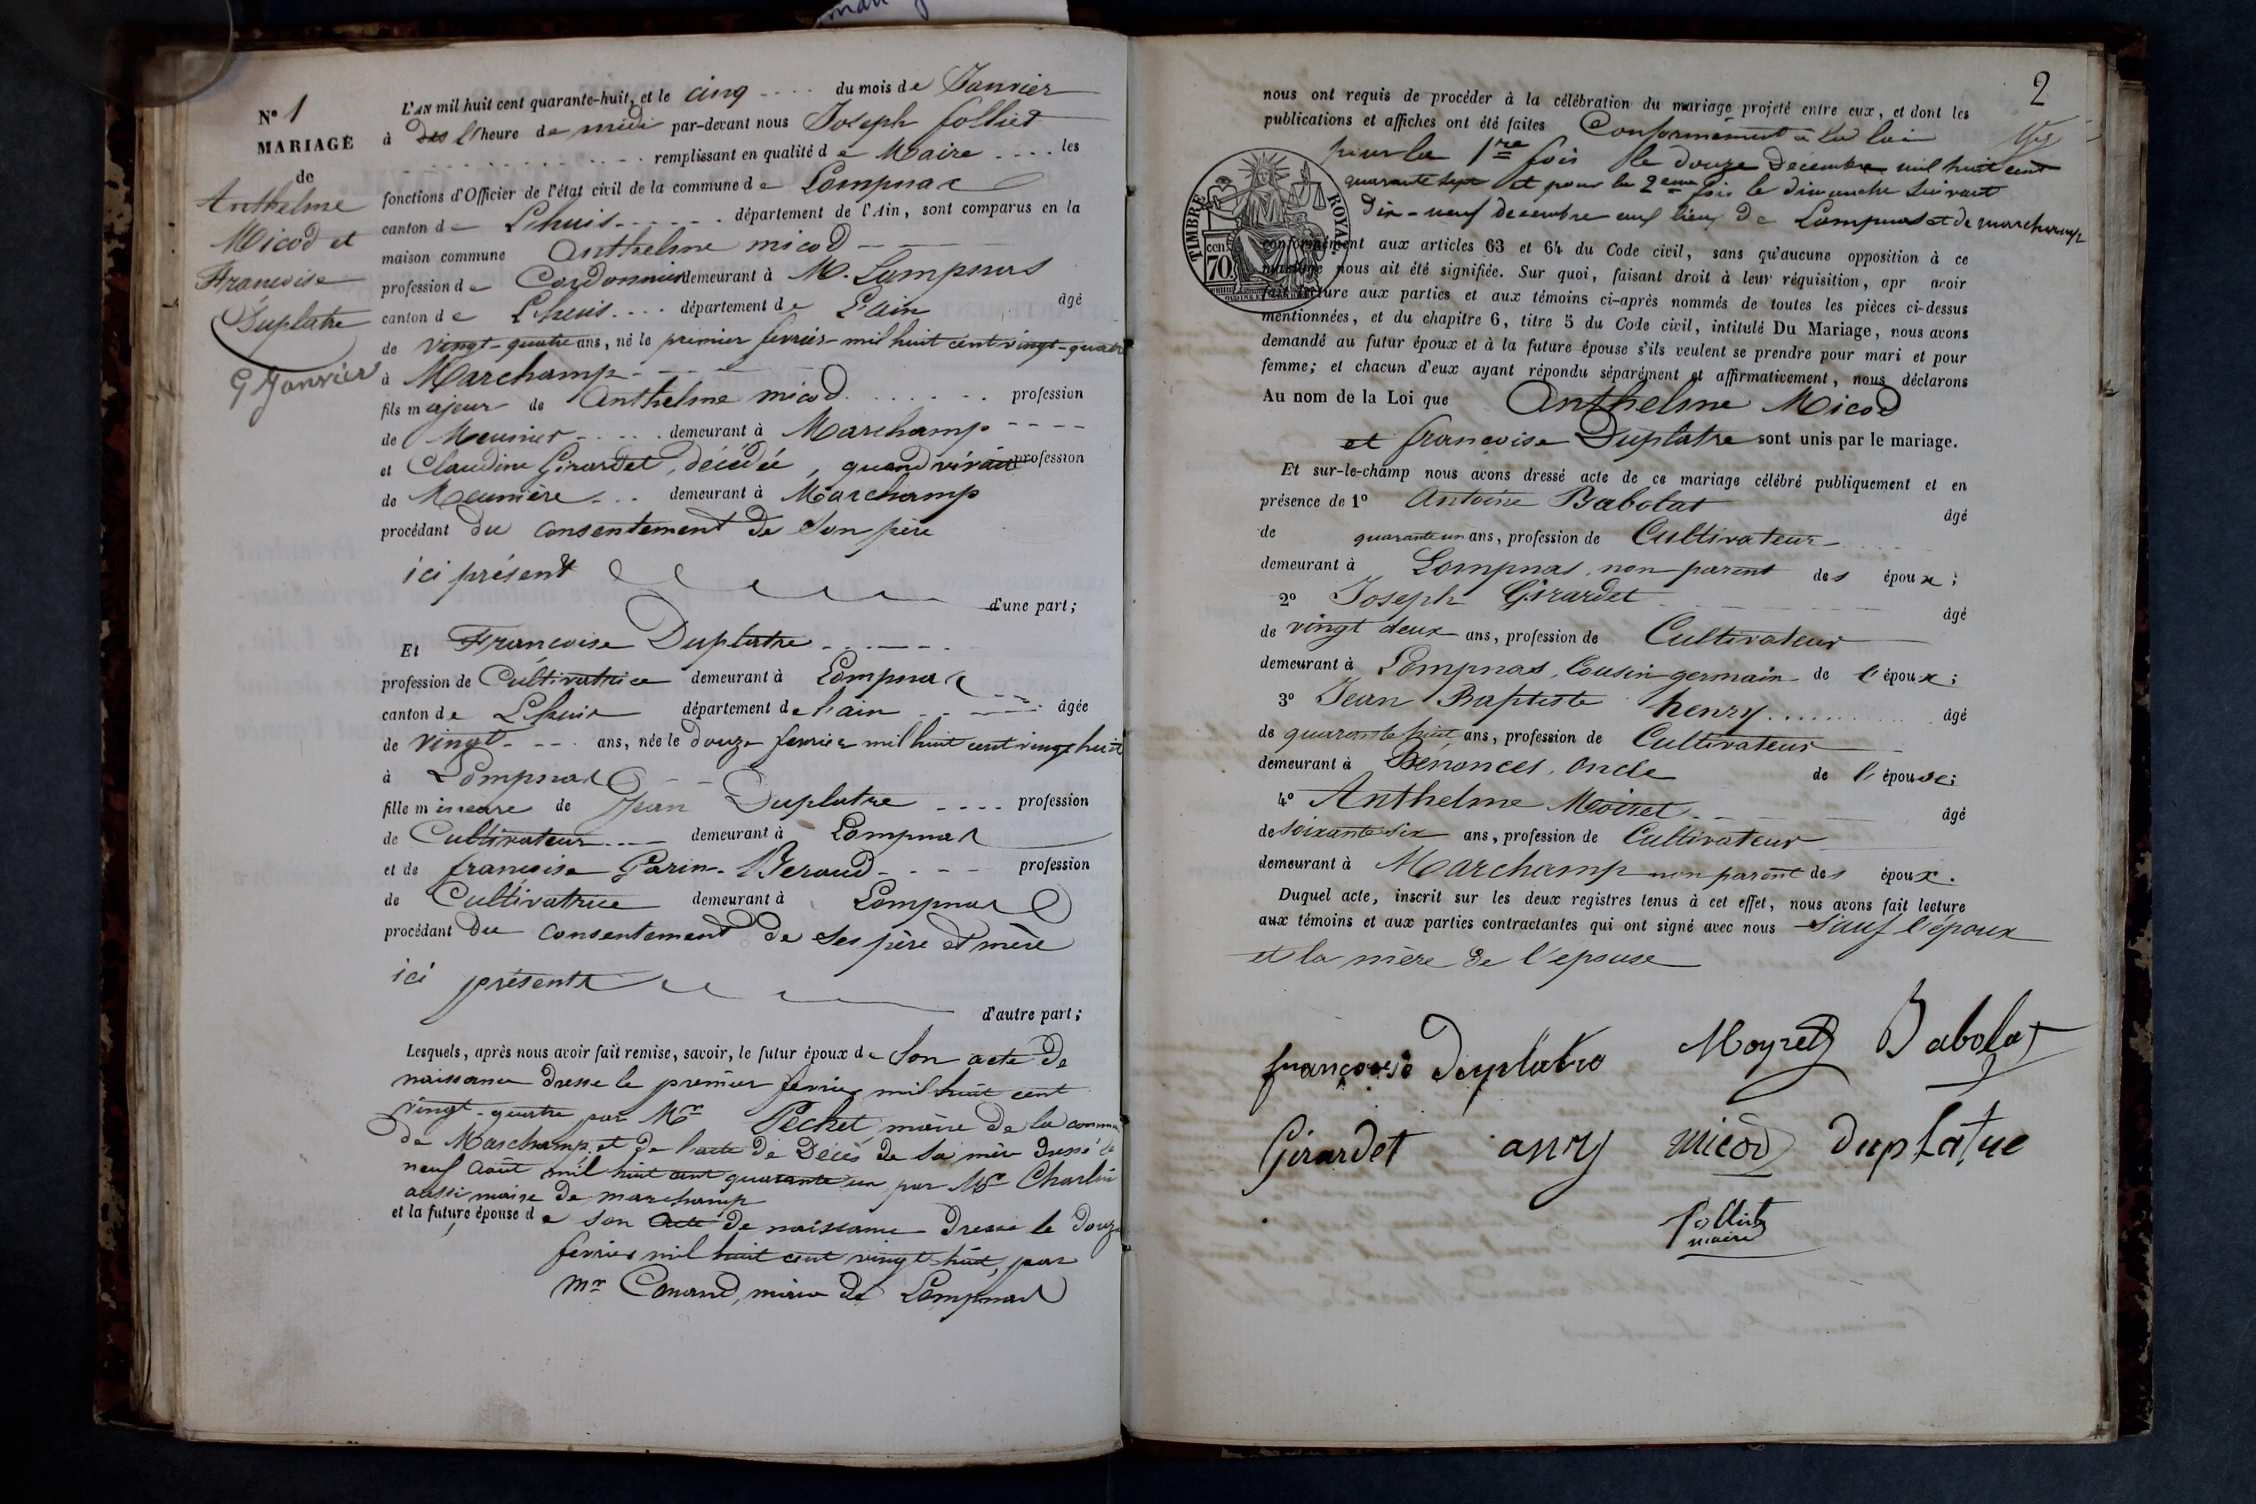 N° 1
MARIAGE
de
Anthelme
Micod et
Françoise
Duplatre
9 Janvier
L'AN mil huit cent quarante-huit, et le cinq du mois de Janvier
à l'heure de midi par-devant nous Joseph folliet
remplissant en qualité de Maire les
fonctions d'Officier de l'état civil de la commune de Lompnas
canton de Lhuis département de l'Ain, sont comparus en la
maison commune Anthelme micod
profession de Cordonnier demeurant à M. Lompnas
canton de Lhuis département de L'ain âgé
de vingt-quatre ans, né le premier fevrier mil huit cent vingt-quatre
à Marchamp
fils majeur de Anthelme micod profession
de Meunier demeurant à Marchamp
et Claudine Girardet, décédée, quand vivait profession
de Meunière demeurant à Marchamp
procédant du consentement de son père
ici présent
d'une part;
Et Françoise Duplatre
profession de Cultivatrice demeurant à Lompnas
canton de Lhuis département de l'ain âgée
de vingt ans, née le douze fevrier mil huit cent vingt huit
à Lompnas
fille mineure de Jean Duplatre profession
de Cultivateur demeurant à Lompnas
et de françoise Garin-Beraud profession
de Cultivatrice demeurant à Lompnas
procédant du consentement de ses père et mère
ici présents
d'autre part;
Lesquels, après nous avoir fait remise, savoir, le futur époux de son acte de
naissance dresse le premier fevrier mil huit cent
vingt-quatre par Mr Pechet, maire de la commune
de Marchamp, et de l'acte de Décès de sa mère dressé le
neuf Août mil huit cent quarante un par Mr Charlin
aussi maire de marchamp
et la future épouse de son acte de naissance dresse le douze
fevrier mil huit cent vingt huit, par
Mr Conand, maire de Lompnas
2
nous ont requis de procéder à la célébration du mariage projeté entre eux, et dont les
publications et affiches ont été faites Conformément à la loi
pour la 1re fois le douze Decembre mil huit cent
quarante sept et pour la 2eme fois le dimanche suivant
dix-neuf decembre aux lieux de Lompnas et de marchamp
TIMBRE ROYAL
70 cen
conformément aux articles 63 et 64 du Code civil, sans qu'aucune opposition à ce
mariage nous ait été signifiée. Sur quoi, faisant droit à leur réquisition, apr avoir
fait lecture aux parties et aux témoins ci-après nommés de toutes les pièces ci-dessus
mentionnées, et du chapitre 6, titre 5 du Code civil, intitulé Du Mariage, nous avons
demandé au futur époux et à la future épouse s'ils veulent se prendre pour mari et pour
femme; et chacun d'eux ayant répondu séparément et affirmativement, nous déclarons
Au nom de la Loi que Anthelme Micod
et françoise Duplatre sont unis par le mariage.
Et sur-le-champ nous avons dressé acte de ce mariage célébré publiquement et en
présence de 1° Antoine Babolat âgé
de quarante un ans, profession de Cultivateur
demeurant à Lompnas, non parent des époux;
2° Joseph Girardet âgé
de vingt deux ans, profession de Cultivateur
demeurant à Lompnas, Cousin germain de l'époux;
3° Jean Baptiste henry âgé
de quarante huit ans, profession de Cultivateur
demeurant à Bénonces, oncle de l'épouse;
4° Anthelme Moiret âgé
de soixante six ans, profession de Cultivateur
demeurant à Marchamp non parent des époux.
Duquel acte, inscrit sur les deux registres tenus à cet effet, nous avons fait lecture
aux témoins et aux parties contractantes qui ont signé avec nous sauf l'époux
et la mère de l'epouse
françoise Duplatre Moyret Babolat
Girardet anry micod duplatre
folliet
maire